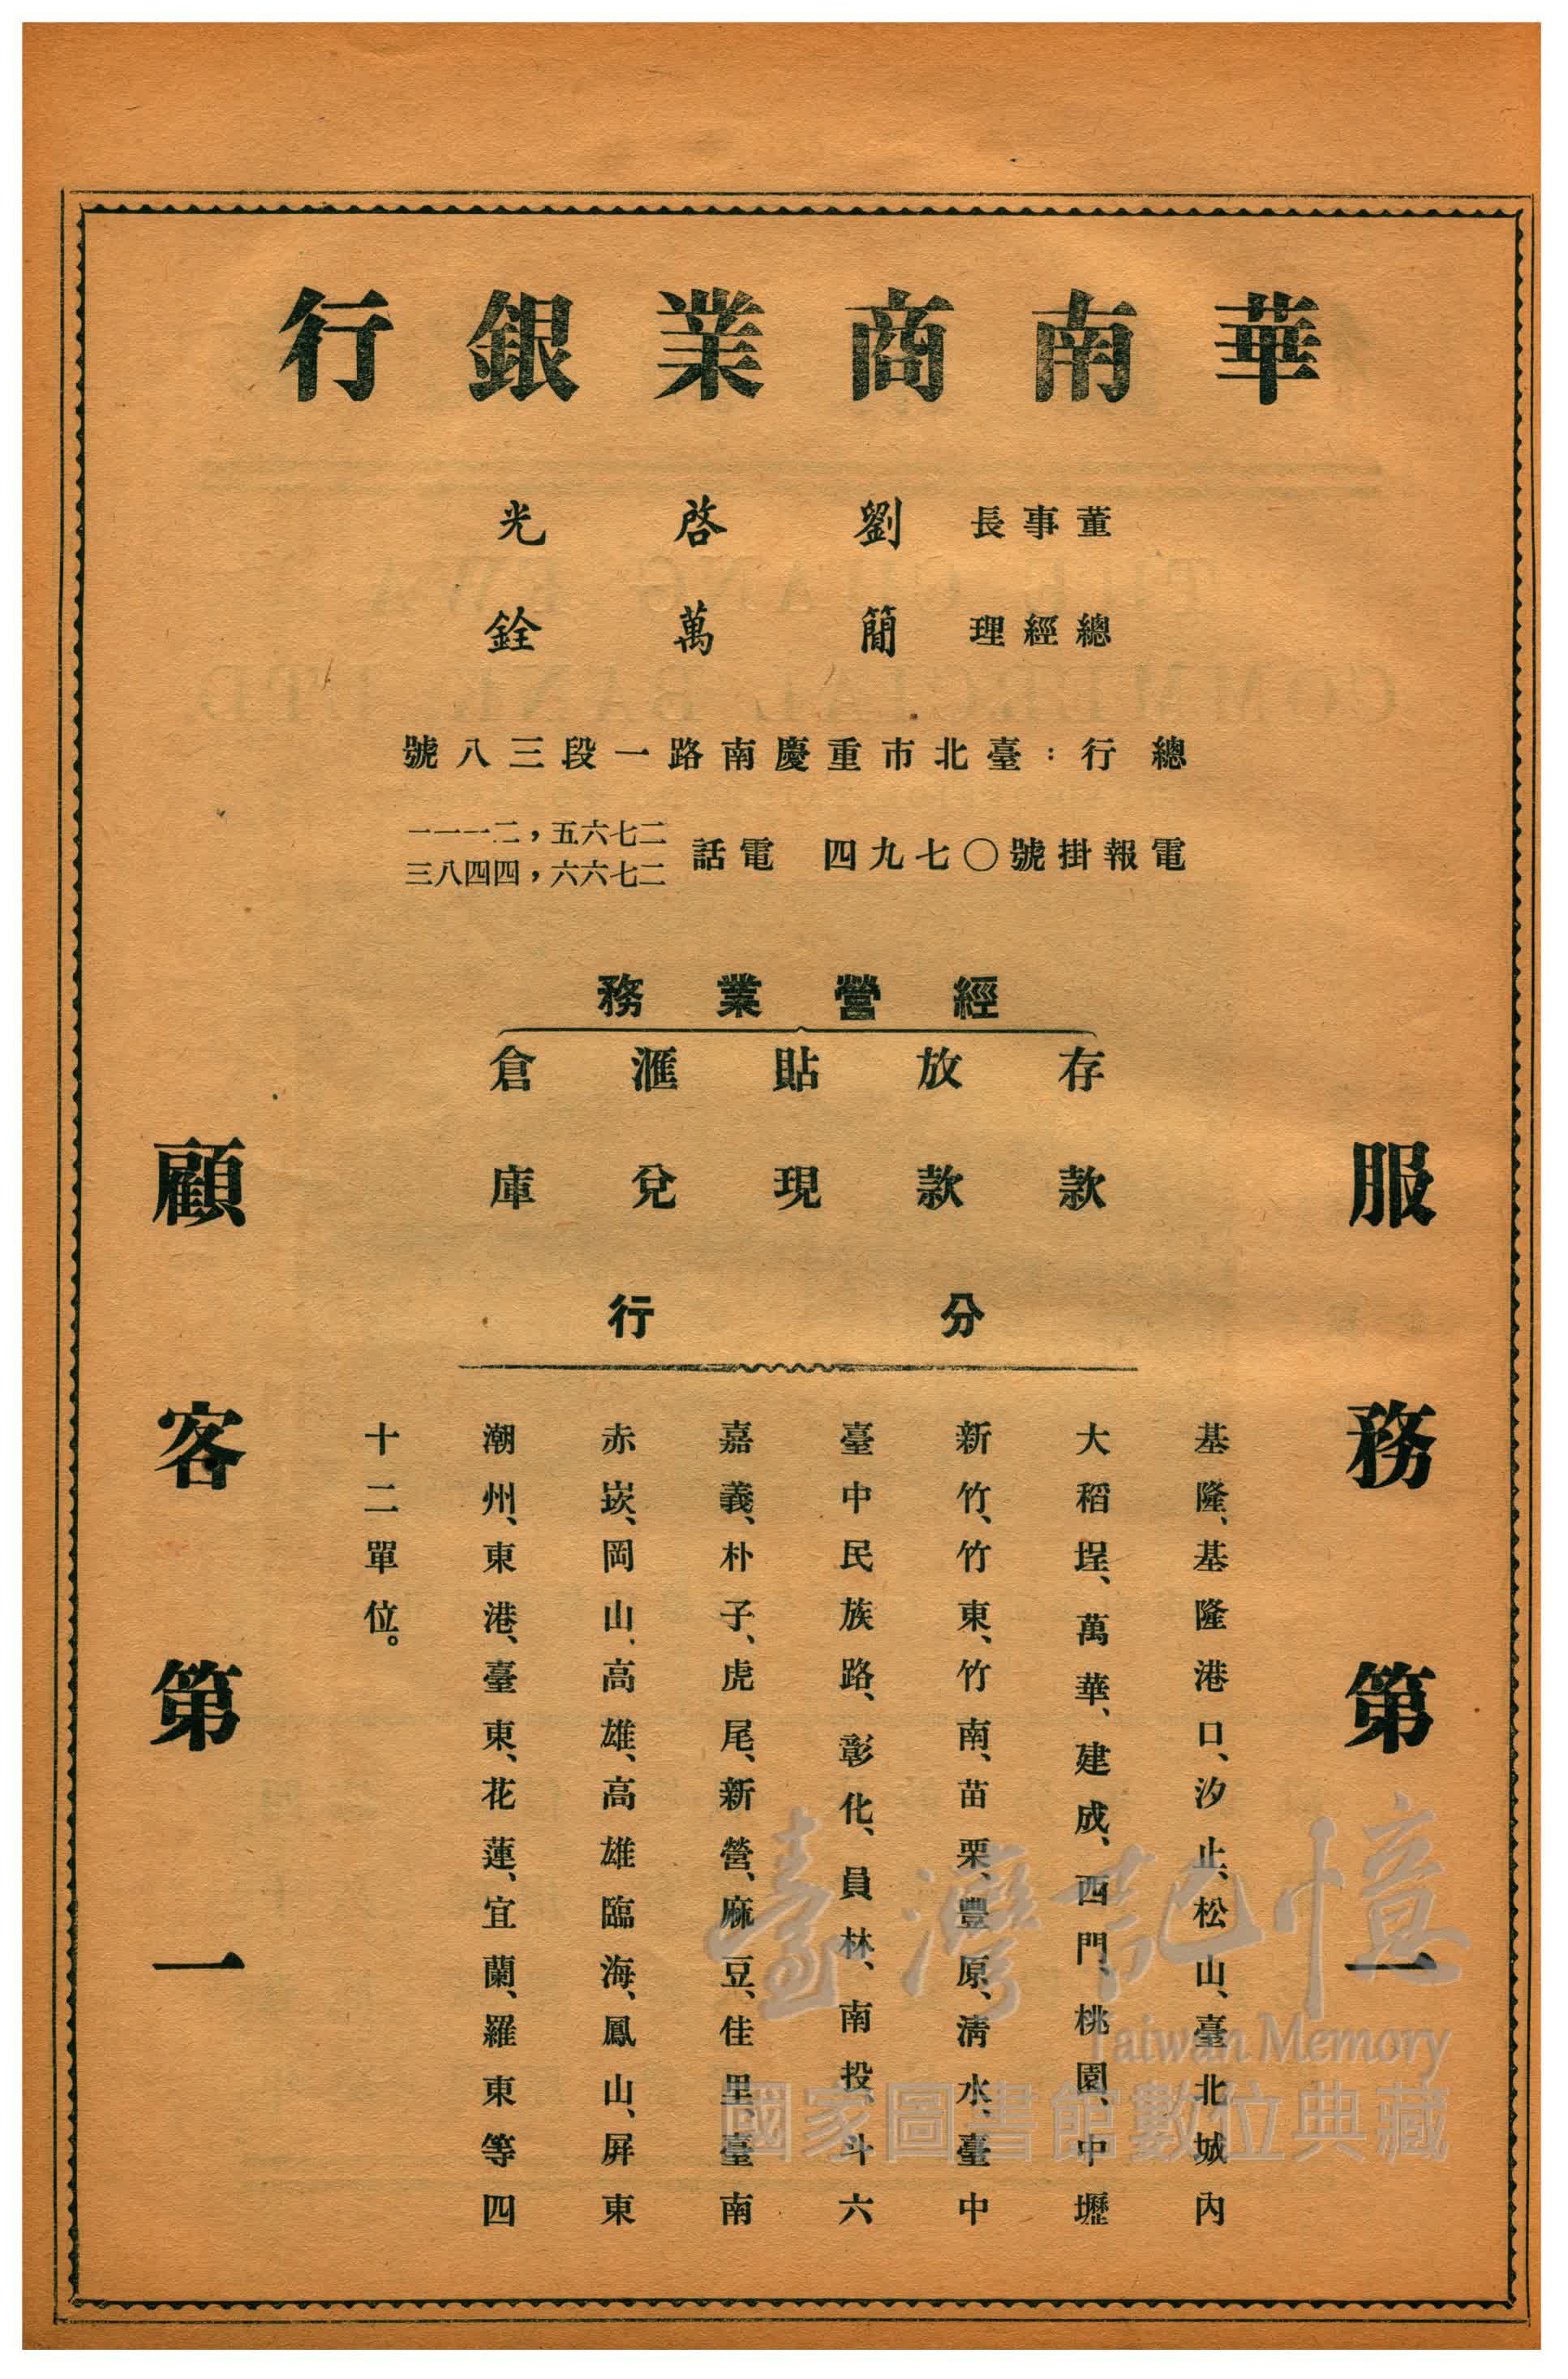 華南商業銀行
董事長 劉啓光
總經理 簡萬銓
總行：臺北市重慶南路一段三八號
電報掛號〇七九四 電話 二七六五，二一一一
二七六六，四四八三
經營業務
存款
放款
貼現
滙兌
倉庫
分行
基隆、基隆港口、汐止、松山、臺北城內
大稻埕、萬華、建成、西門、桃園、中壢
新竹、竹東、竹南、苗栗、豐原、清水、臺中
臺中民族路、彰化、員林、南投、斗六
嘉義、朴子、虎尾、新營、麻豆、佳里、臺南
赤崁、岡山、高雄、高雄臨海、鳳山、屏東
潮州、東港、臺東、花蓮、宜蘭、羅東等四
十二單位。
服務第一
顧客第一
臺灣記憶
Taiwan Memory
國家圖書館數位典藏